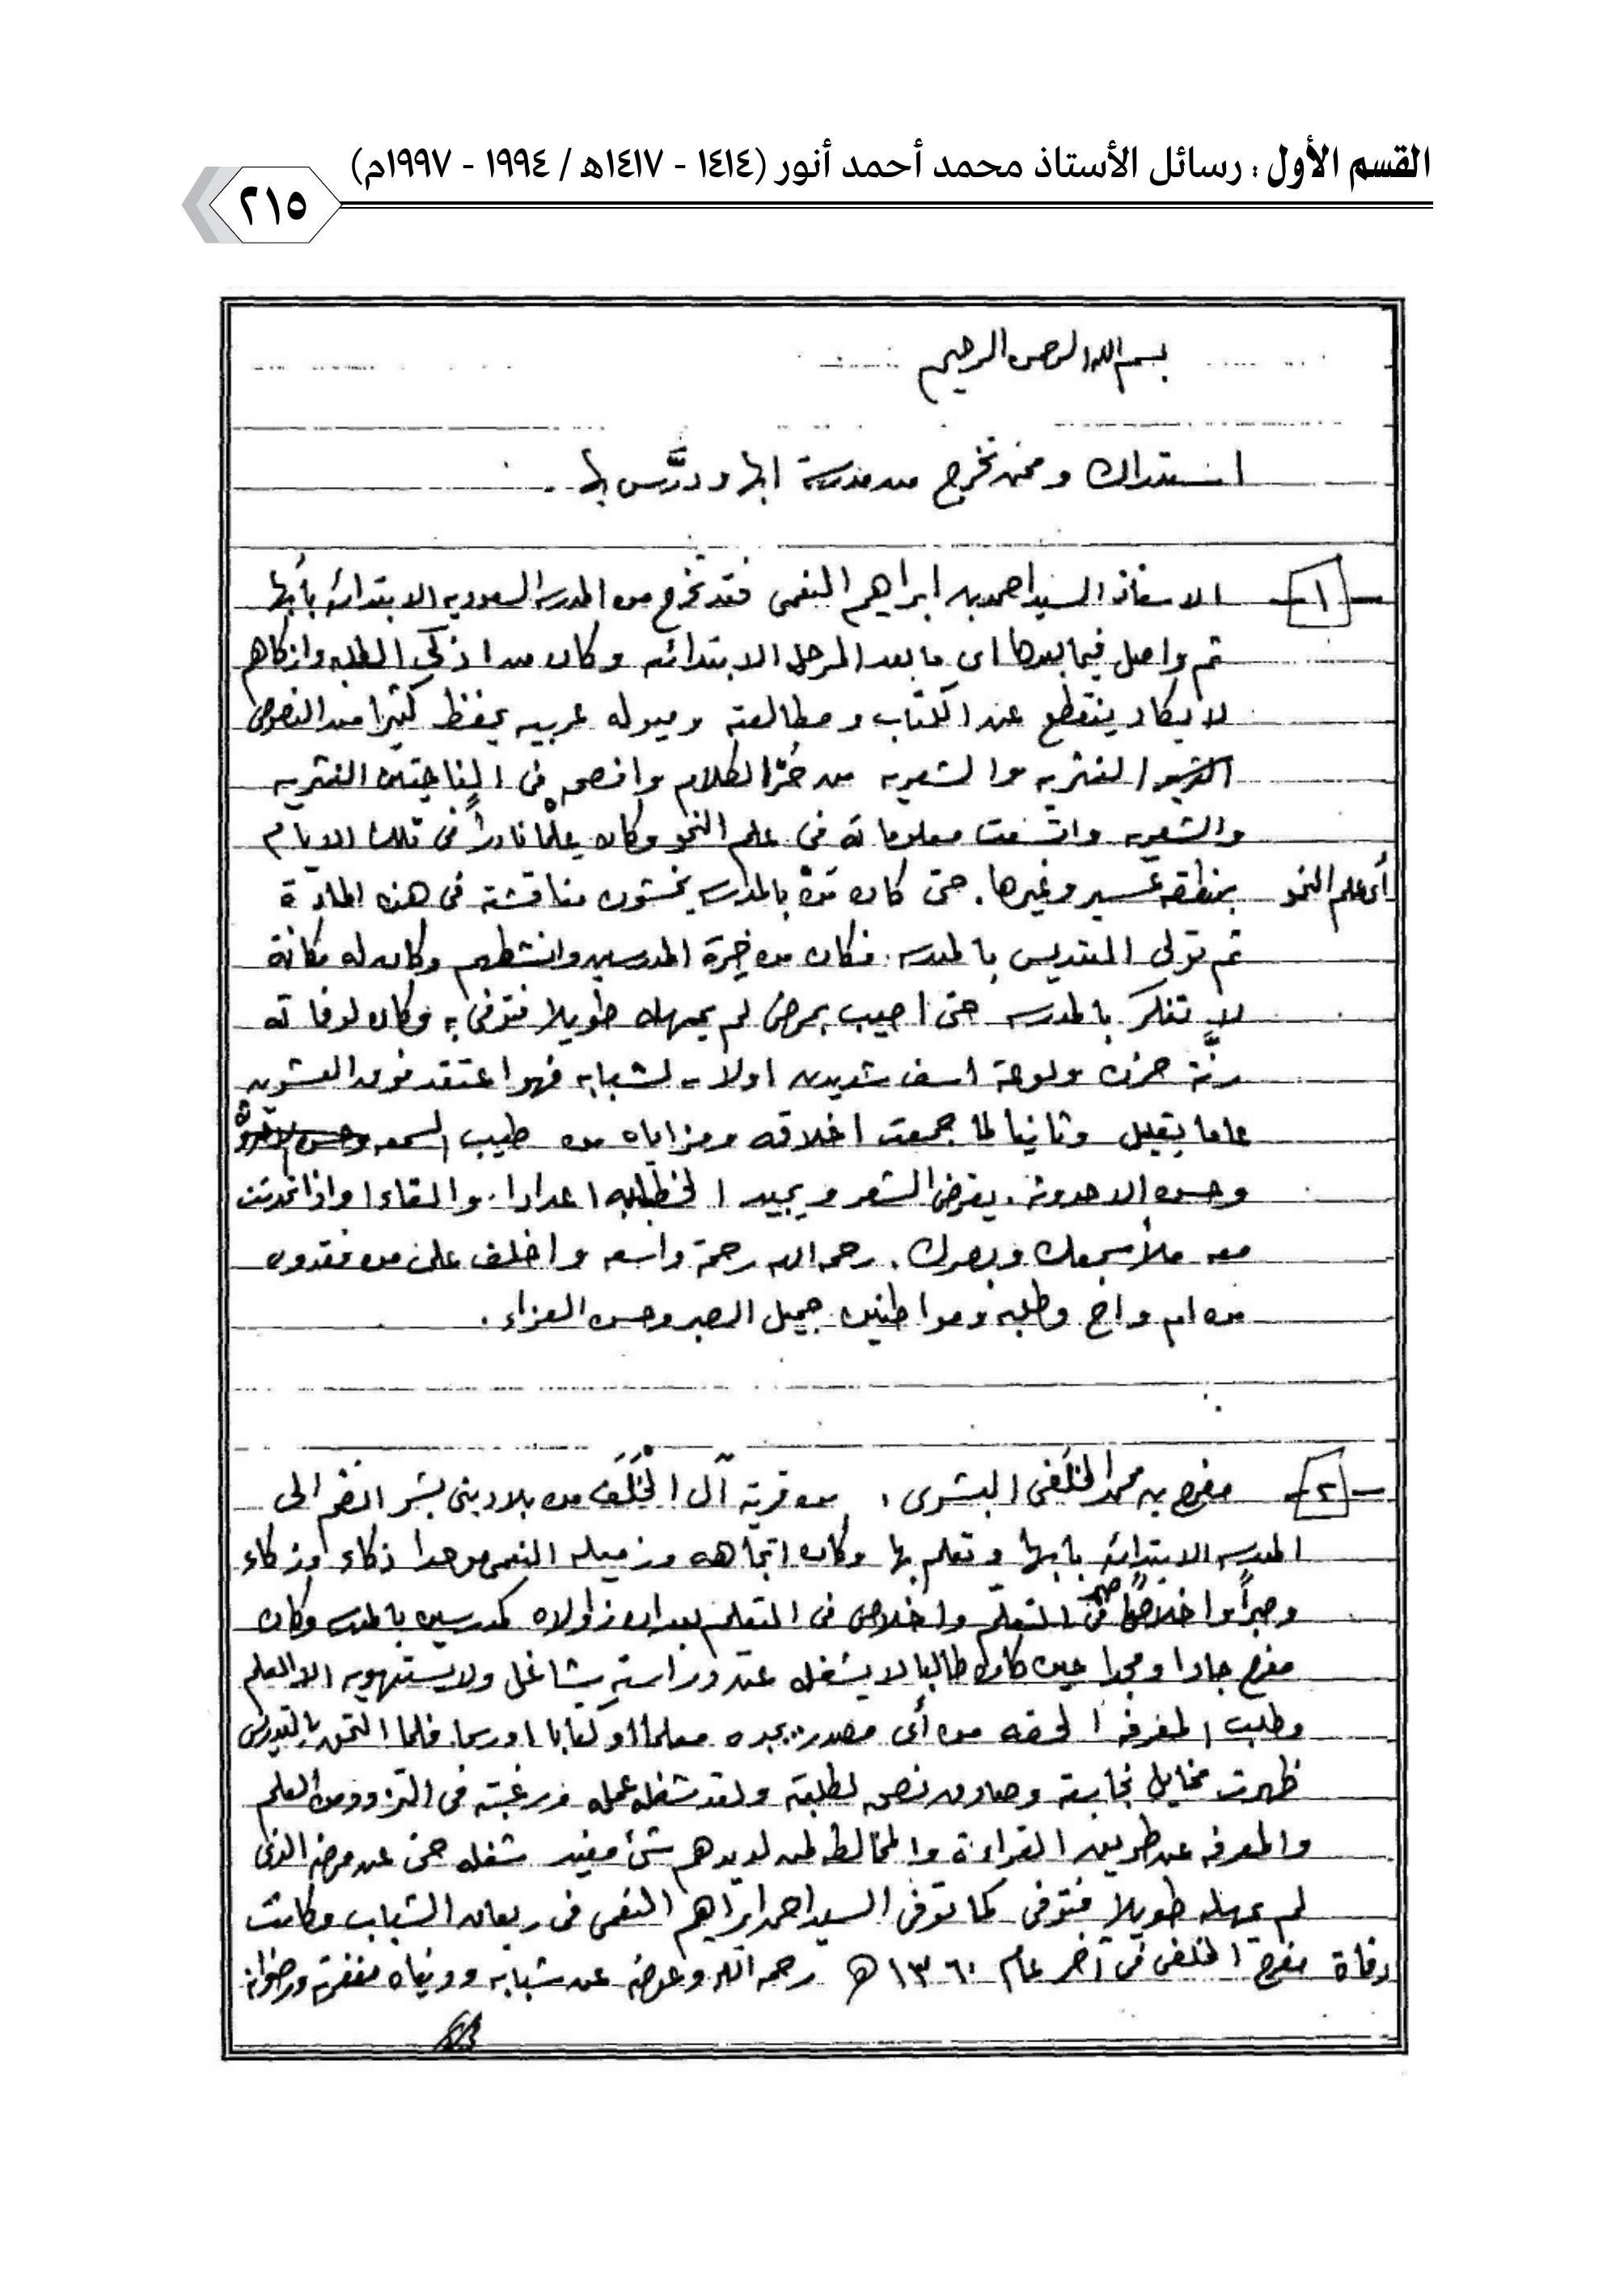 القسم الأول : رسائل الأستاذ محمد أحمد أنور (١٤١٤ - ١٤١٧هـ / ١٩٩٤ - ١٩٩٧م)
٢١٥
بسم الله الرحمن الرحيم
استدراك وممن تخرج من مدرسة ابها ودرَّس بها .
-١- الاستاذ السيد احمد بن ابراهيم النعمى فقد تخرج من المدرسه السعوديه الابتدائيه بأبها
ثم واصل فيما بعدها اى ما بعد المرحله الابتدائيه وكان من اذكى الطلبه وازكاهم
لا يكاد ينقطع عن الكتاب ومطالعته وميوله عربيه يحفظ كثيرا من النصوص
النثريه والشعريه من حُرّ الكلام وافصحه فى الناحيتين النثريه
والشعريه واتسعت معلوماته فى علم النحو وكان علماً نادراً فى تلك الايام
أى علم النحو بمنطقة عسير وغيرها . حتى كان من بالمدرسه يخشون مناقشته فى هذه المادّة
ثم تولى التدريس بالمدرسه . فكان من خيرة المدرسين وانشطهم وكان له مكانة
لا تنكر بالمدرسه حتى اصيب بمرض لم يمهله طويلا فتوفى به وكان لوفاته
رنّة حزن ولوعة اسف شديدين اولا - لشبابه فهو اعتقد فوق العشرين
عاما بقليل وثانيا لما جمعت اخلاقه ومزاياه من طيب السمعه
وحسن الاحدوثه . يقرض الشعر ويجيد الخطابه اعدادا . والقاءا واذا تحدثت
معه ملأ سمعك وبصرك . رحمه الله رحمة واسعه واخلف على من فقدوه
من ام واخ وطلبه ومواطنين جميل الصبر وحسن العزاء .
-٢- مفرح بن محمد الخَلَفى البشرى ، من قرية آل الخَلَف من بلاد بنى بشر انضم الى
المدرسه الابتدائيه بابها وتعلم بها وكان اتجاهه وزميله النعمى موحدا ذكاء وزكاء
وصبراً واخلاصا فى التعلم واخلاص فى التعليم بعد ان زاولاه كمدرسين بالمدرسه وكان
مفرح جادا ومجدا حين كان طالبا لا يشغله عن دراسته شاغل ولا يستهويه الا العلم
وطلب المعرفه الحقه من أى مصدر يجده معلما او كتابا او رسما . فلما التحق بالتدريس
ظهرت مخايل نجابته وصادق نصحه لطلبته ولقد شغله عمله ورغبته فى التزود من العلم
والمعرفه عن طريق القراءة والمخالطه لمن لديهم شئ مفيد شغله حتى عن مرضه الذى
لم يمهله طويلا فتوفى كما توفى السيد احمد ابراهيم النعمى فى ريعان الشباب وكانت
وفاة مفرح الخلفى فى آخر عام ١٣٦٠ هـ رحمه الله وعوضه عن شبابه ودنياه مغفرته ورضوانه